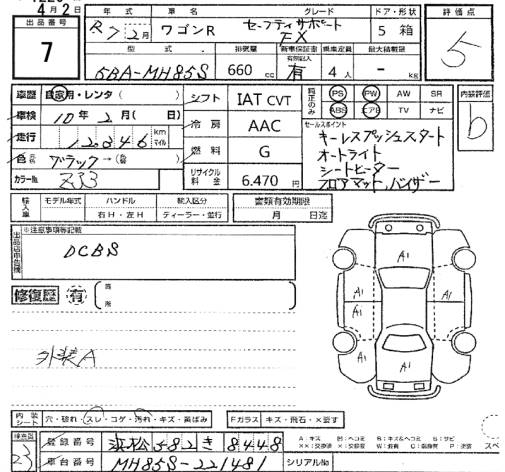 4月2日
年式 車名 グレード ドア・形状 評価点
出品番号 R7 2月 ワゴンR セーフティサポート FX 5 箱 5
7
型式 排気量 新車保証書 乗車定員 最大積載量
5BA-MH85S 660 cc 有 4人 - kg
車歴 自家用・レンタ( ) シフト IAT CVT 純正のみ PS PW AW SR 内装評価
車検 10年2月( 日) ABS エアB TV ナビ b
走行 12,346 km マイル 冷房 AAC セールスポイント
キーレスプッシュスタート
色 元色 ブラック→( ) 燃料 G オートライト
シートヒーター
カラーNo. ZJ3 リサイクル料金 6,470円 フロアマット,バイザー
輸入車 モデル年式 ハンドル 輸入区分 書類有効期限
右H・左H ディーラー・並行 月 日迄
出品店申告欄 ※注意事項等記載
DCBS
修復歴 有 箇所
A1
A1 A1
A1 A1
A1
外装A
内装シート 穴・破れ・スレ・コゲ・汚れ・キズ・黄ばみ Fガラス キズ・飛石・X要す
A:キズ B:ヘコミ W:キズ&ヘコミ S:サビ
検査員 登録番号 浜松582き8448
23 車台番号 MH85S-221481 シリアルNo.